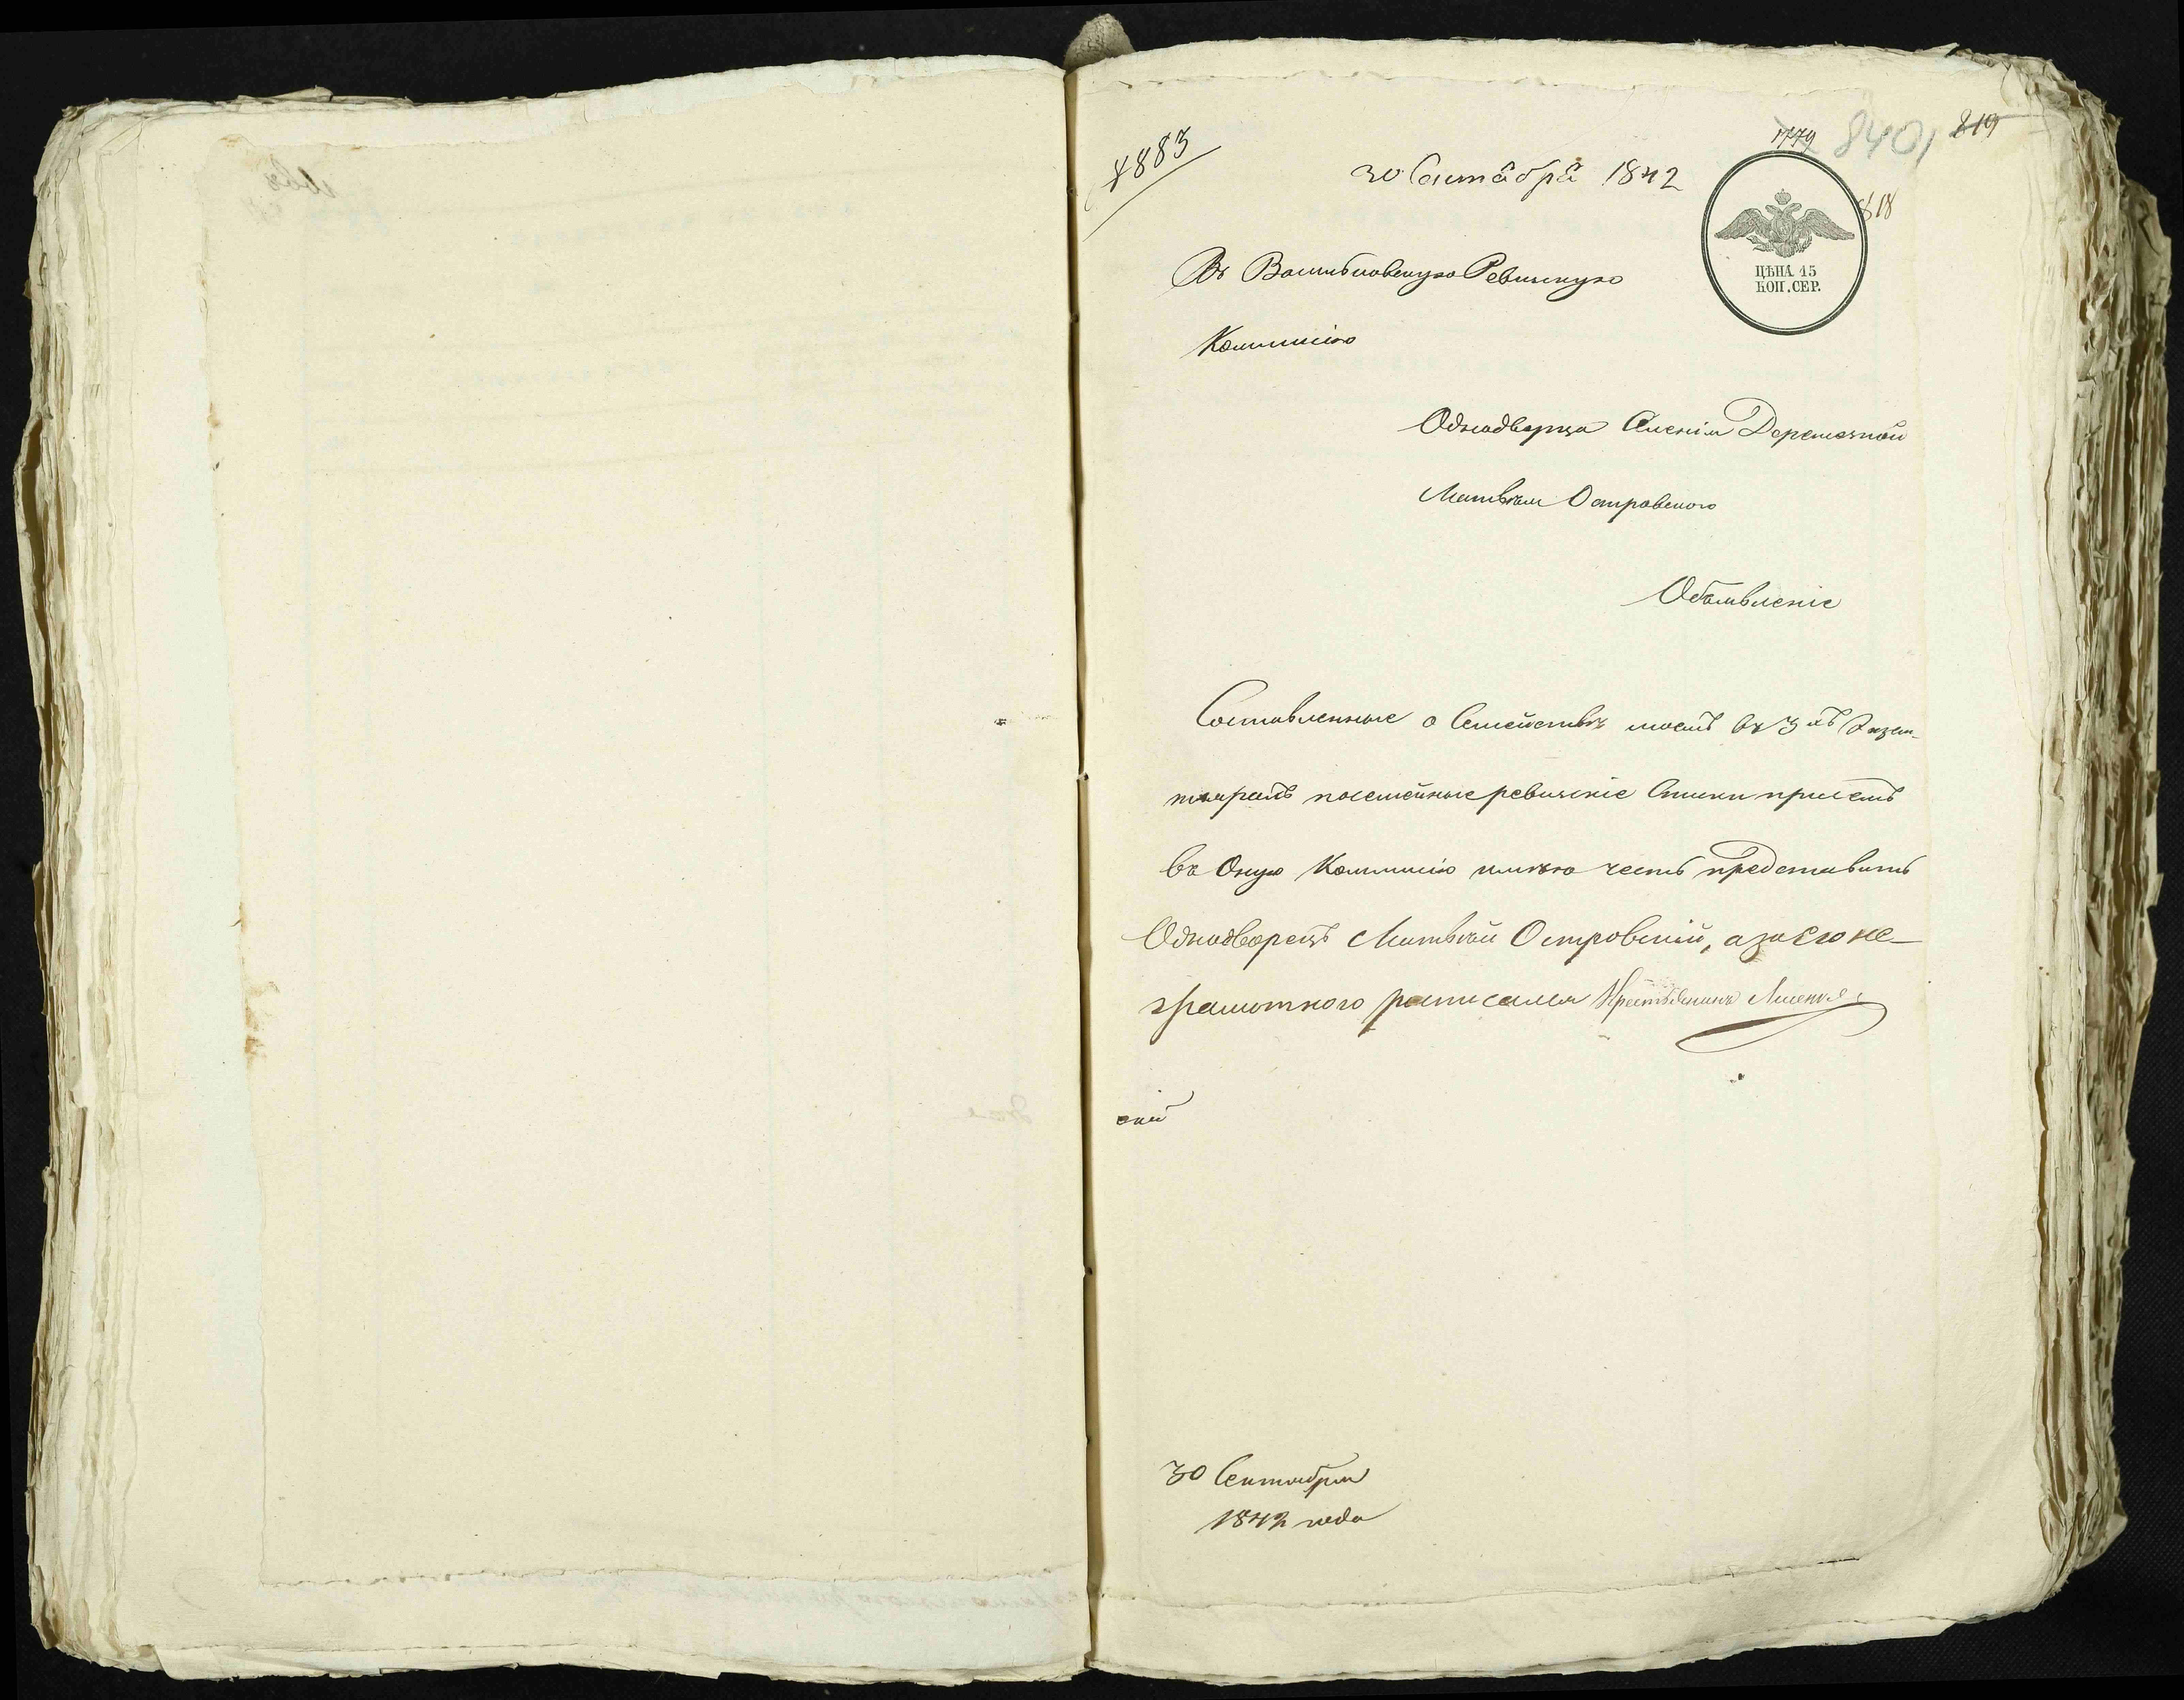 4883
30 Сентября 1842
1779 8401 819
818
ЦѢНА 15
КОП. СЕР.
Въ Ревизскую
Коммисію
Однодворца Селенія
Матвѣя Островского
Объявленіе
Составленные о Семействѣ моемъ въ 3хъ Экзем-
плярахъ посемейные ревизскіе Списки присемъ
въ Оную Коммисію имѣю честь представить
Однодворецъ Матвѣй Островскій, а за его не-
грамотного росписался Крестьянинъ
скій
30 Сентября
1842 года